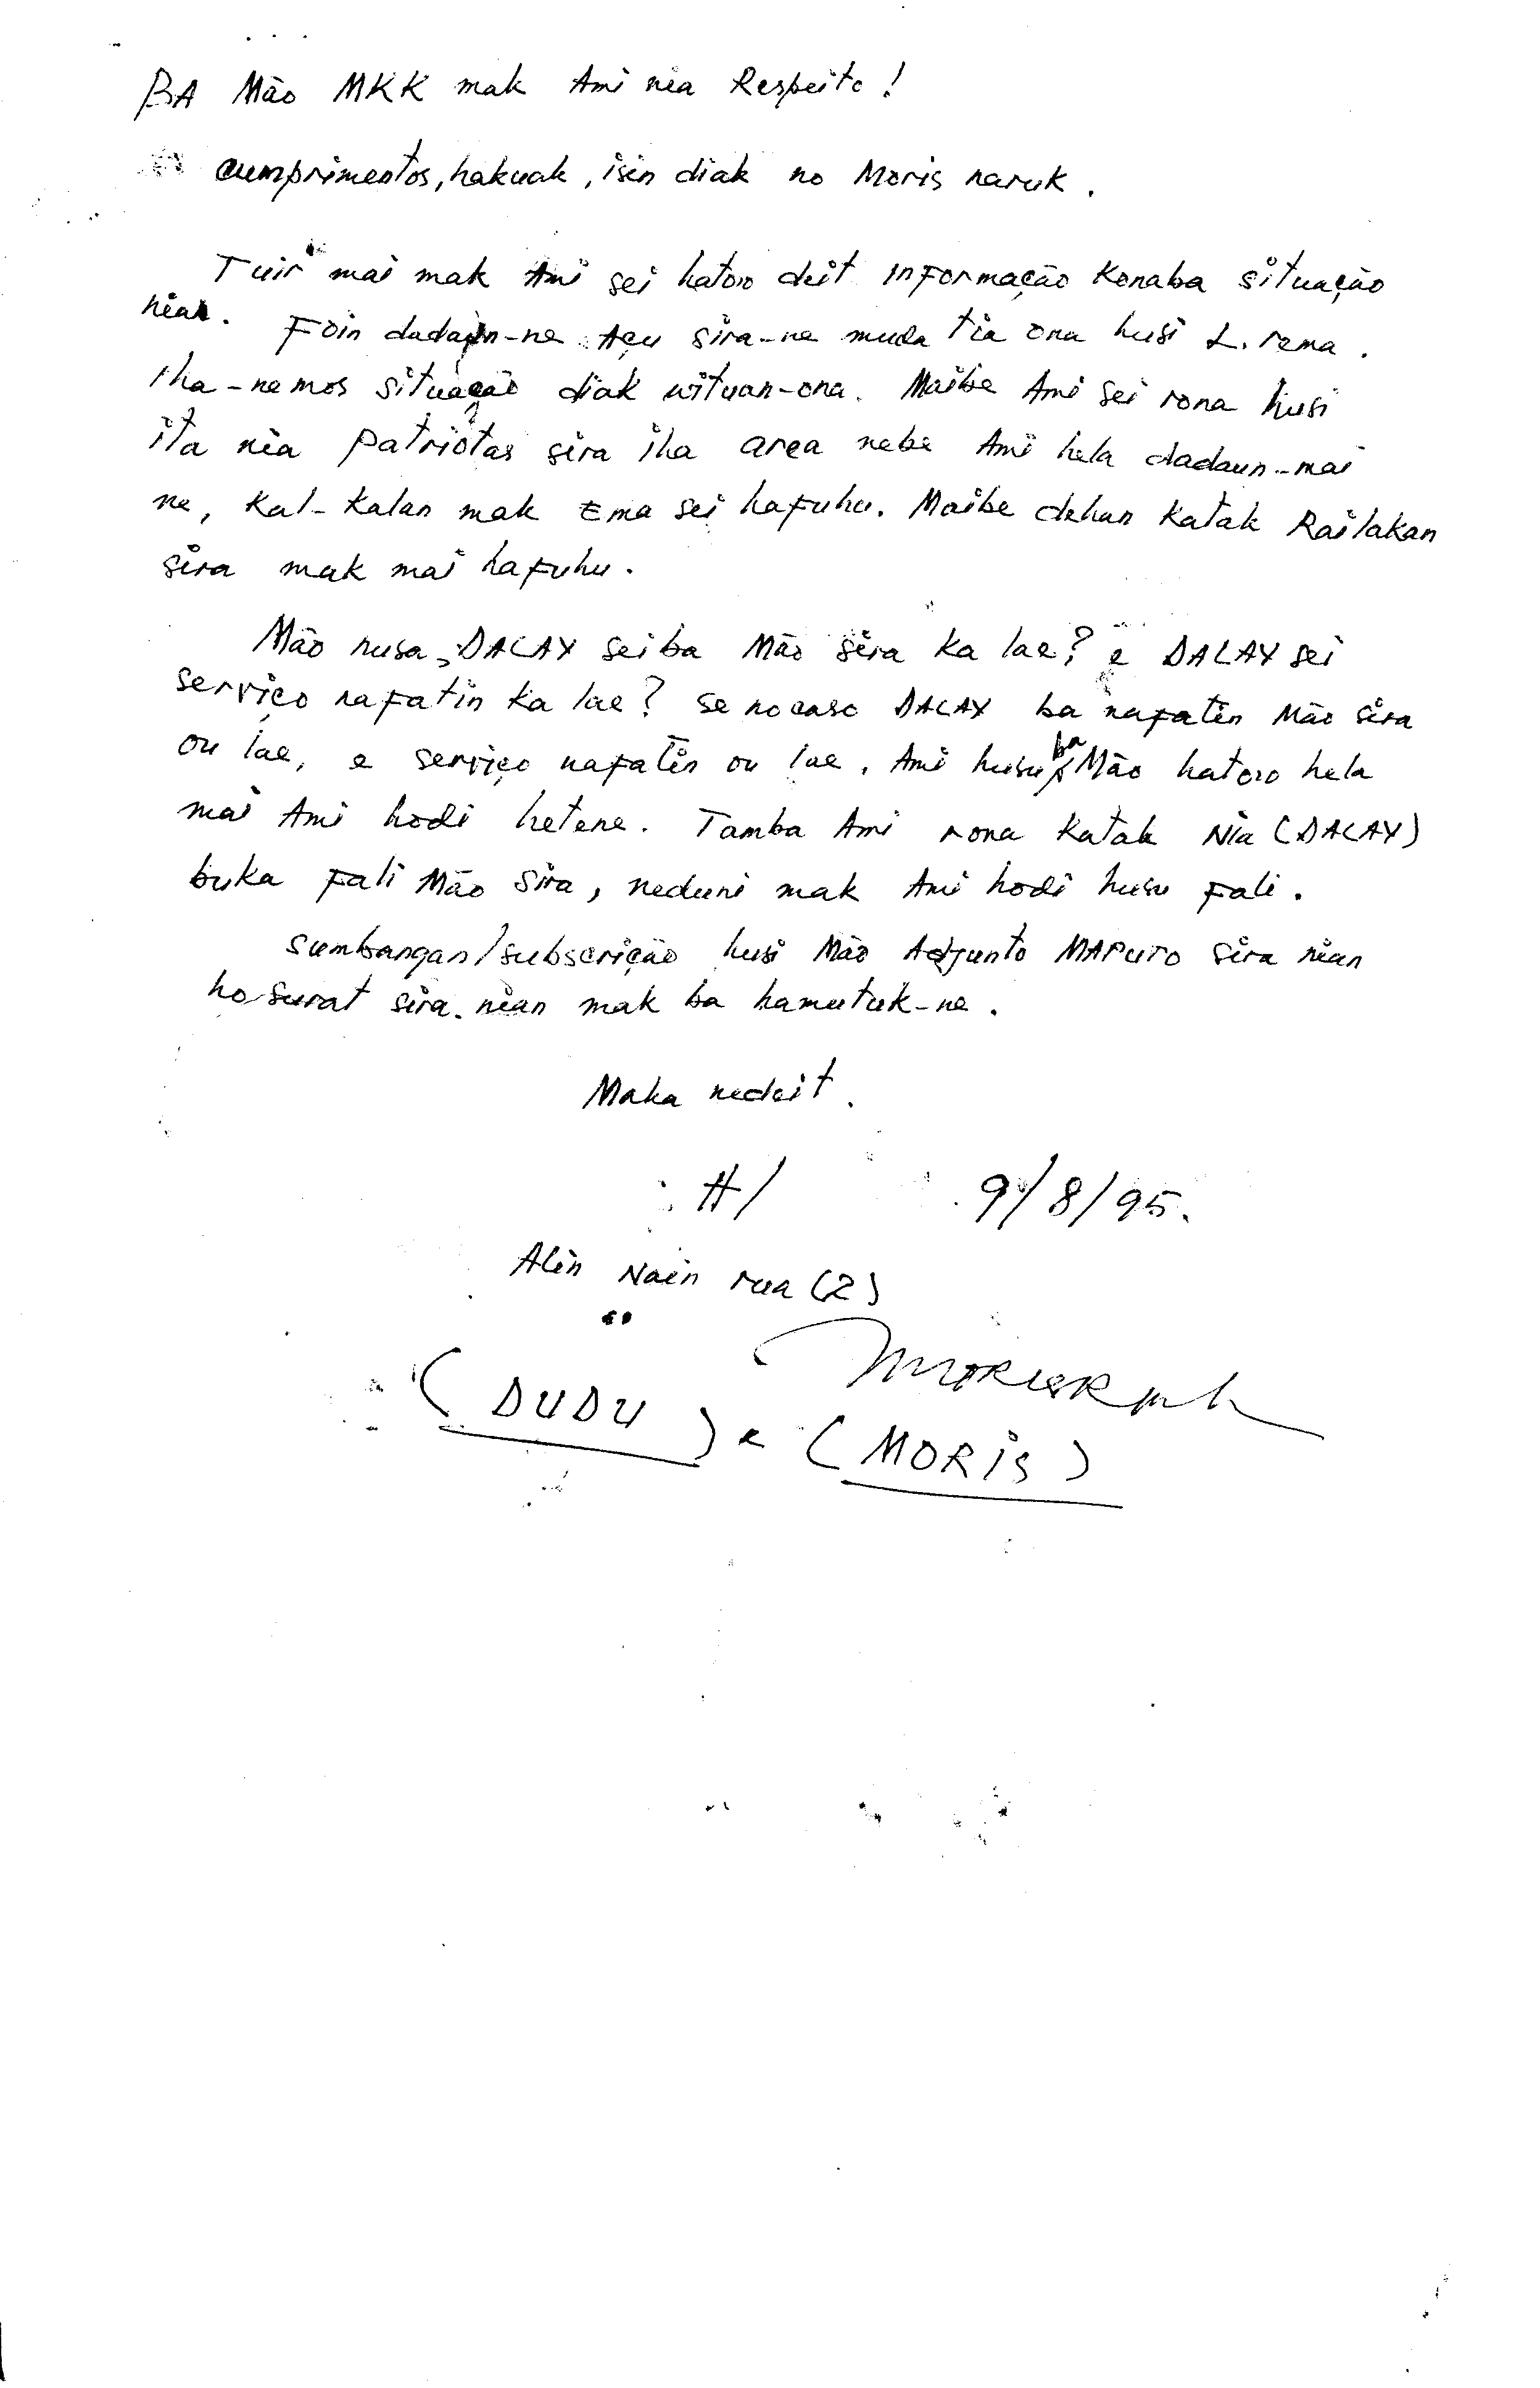 BA Mão MKK mak Ami nia Respeito!
Cumprimentos, hakuak, isin diak no Moris naruk.
Tuir mai mak Ami sei hatoro deit informação Konaba situação
nian. Foin dadaun-ne Açu sira-ne muda tia ona husi L. rema.
Iha-nemos situação diak uituan-ona. Maibe Ami sei rona husi
ita nia patriotas sira iha area nebe Ami hela dadaun-mai
ne, kal-kalan mak Ema sei hafuhu. Maibe dehan katak Railakan
sira mak mai hafuhu.
Mão nusa, DALAY sei ba Mão sira ka lae? e DALAY sei
serviço nafatin ka lae? se no caso DALAY ba nafatin Mão sira
ou lae, e serviço nafatin ou lae, Ami husu ba Mão hatoro hela
mai Ami hodi hetene. Tamba Ami rona katak Nia (DALAY)
buka fali Mão sira, neduni mak Ami hodi husu fali.
Sumbangan/subscrição husi Mão Adjunto MAPUTO sira nian
ho surat sira-nian mak ba hamutuk-ne.
Maka nedeit.
H/ 9/8/95.
Alin Nain rua (2)
(DUDU) e (MORIS)